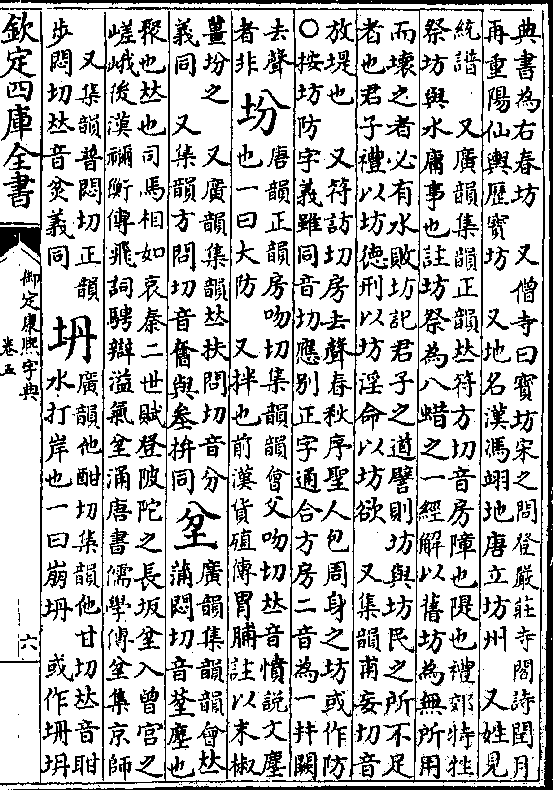 典書為右春坊　又僧寺曰寶坊宋之問登嚴莊寺閣詩閏月
再重陽仙輿歷寶坊　又地名漢馮翊地唐立坊州　又姓見
統譜　又廣韻集韻正韻𠀤符方切音房障也隄也禮郊特牲
祭坊與水庸事也註坊祭為八蜡之一經解以舊坊為無所用
而壞之者必有水敗坊記君子之道譬則坊與坊民之所不足
者也君子禮以坊德刑以坊淫命以坊欲　又集韻甫妄切音
放堤也　又符訪切房去聲春秋序聖人包周身之坊或作防
○按坊防字義雖同音切應別正字通合方房二音為一幷闕
去聲者非
坋　唐韻正韻房吻切集韻韻會父吻切𠀤音憤說文塵
也一曰大防　又拌也前漢貨殖傳胃脯註以末椒
薑坋之　又廣韻集韻𠀤扶問切音分
義同　又集韻方問切音奮與叁拚同
坌　廣韻集韻韻會𠀤
蒲悶切音坌塵也
聚也𠀤也司馬相如哀秦二世賦登陂陀之長坂坌入曾宮之
嵯峨後漢禰衡傳飛詞騁辯溢氣坌涌唐書儒學傳坌集京師
又集韻普悶切正韻
步悶切𠀤音瓫義同
坍　廣韻他酣切集韻他甘切𠀤音聃
水打岸也一曰崩坍　或作坍坍
欽定四庫全書
御定康熙字典
卷五
六